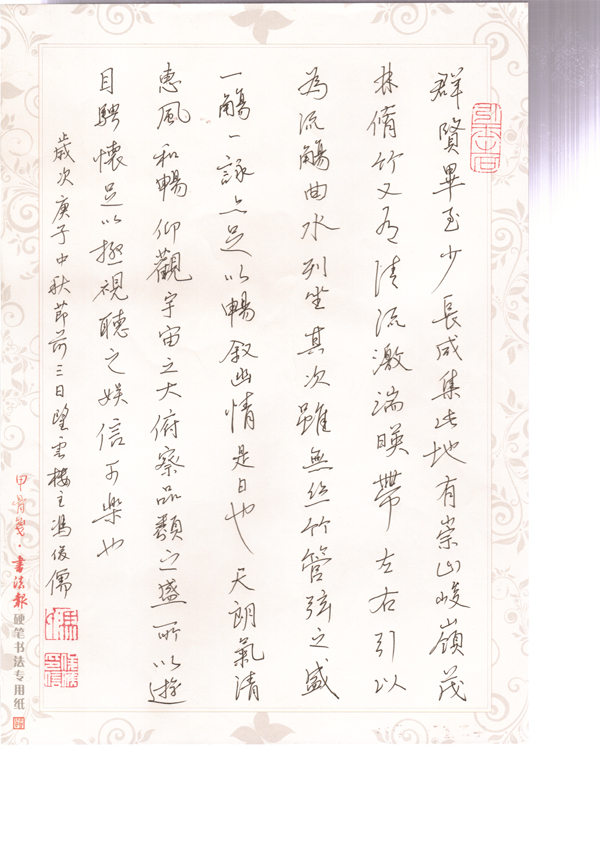 群賢畢至少長咸集此地有崇山峻嶺茂
林脩竹又有清流激湍暎帶左右引以
為流觴曲水列坐其次雖無絲竹管弦之盛
一觴一詠亦足以暢敘幽情是日也天朗氣清
惠風和暢仰觀宇宙之大俯察品類之盛所以遊
目騁懷足以極視聽之娛信可樂也
歲次庚子中秋節前三日望雲樓主馮俊儒
甲骨箋·書法報硬笔书法专用纸